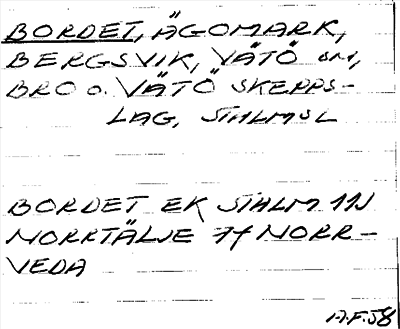 BORDET, ÄGOMARK,
BERGSVIK, VÄTÖ sn,
BRO o. VÄTÖ SKEPPS-
LAG, STHLMSL
BORDET EK STHLM 11J
NORRTÄLJE 7f NORR-
VEDA
A.F.58